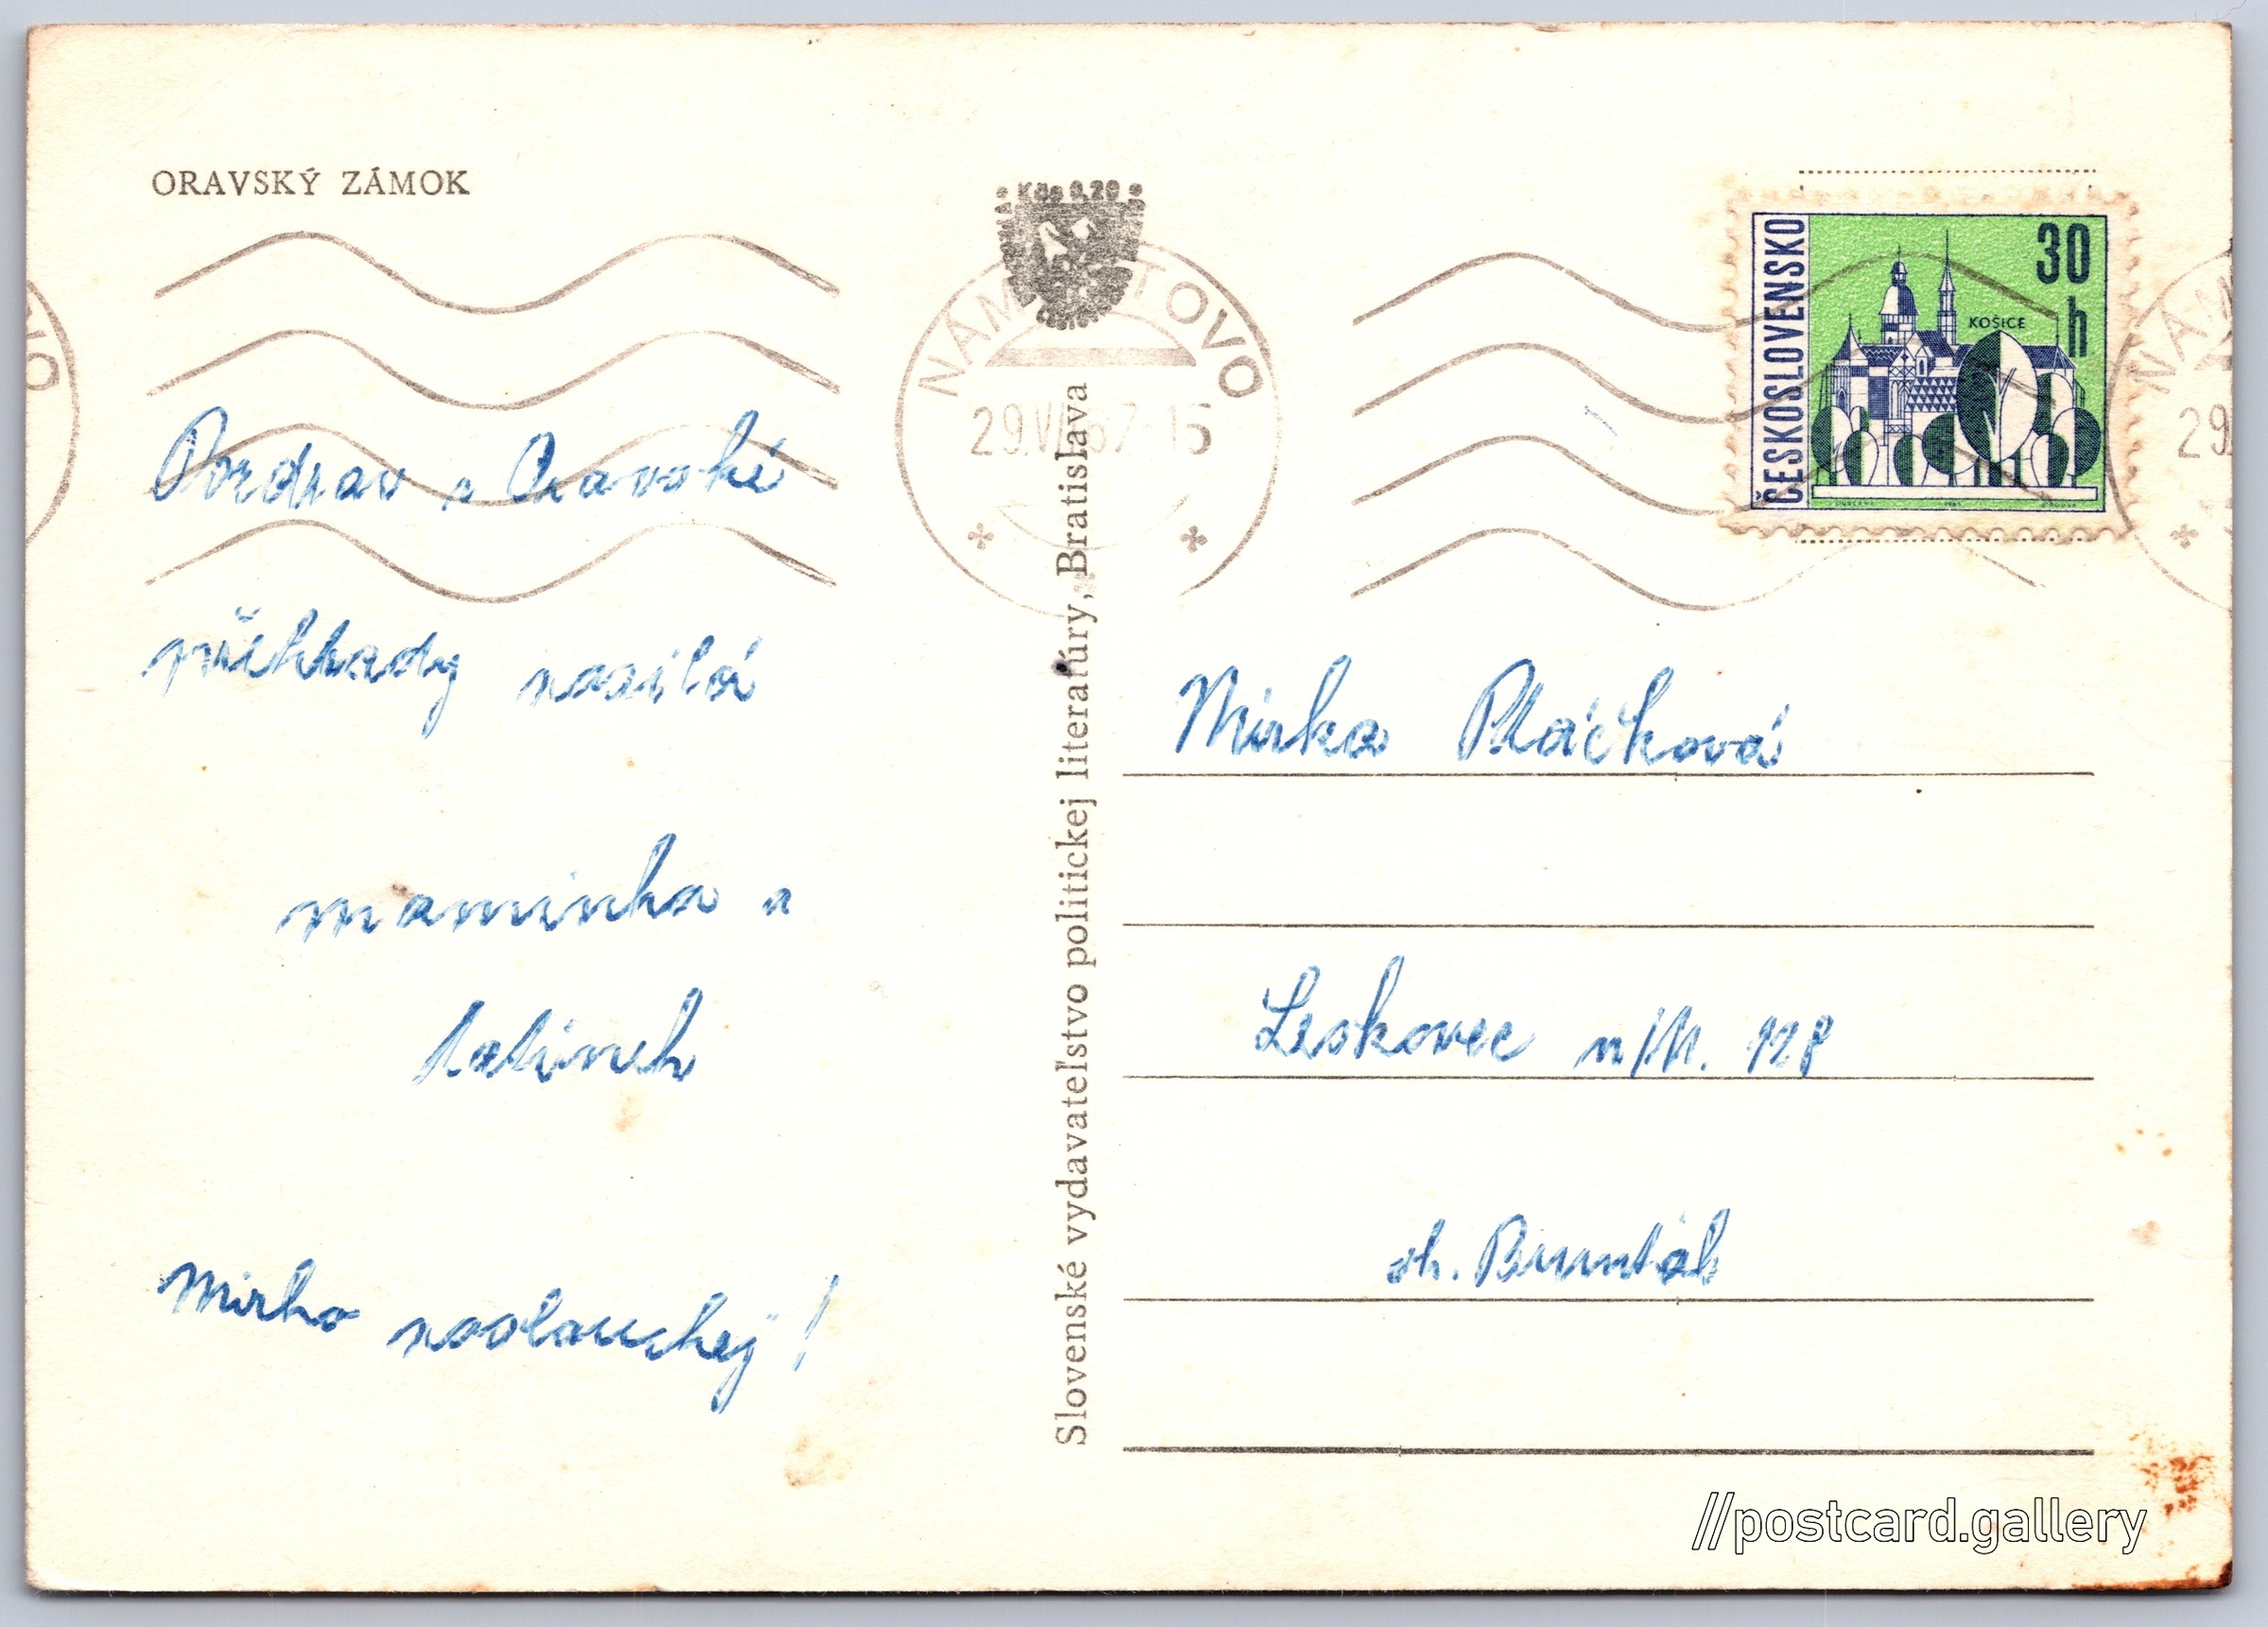 ORAVSKÝ ZÁMOK
Kčs 0,20
NÁM TOVO
29.VI 67-15
ČESKOSLOVENSKO
30
h
KOŠICE
Pozdrav z Oravské
přehrady zasílá
maminka a
tatínek
Mirko poslouchej!
Slovenské vydavateľstvo politickej literatúry, Bratislava
Mirka Plačková
Leskovec n/M. 128
ok. Bruntál
//postcard.gallery